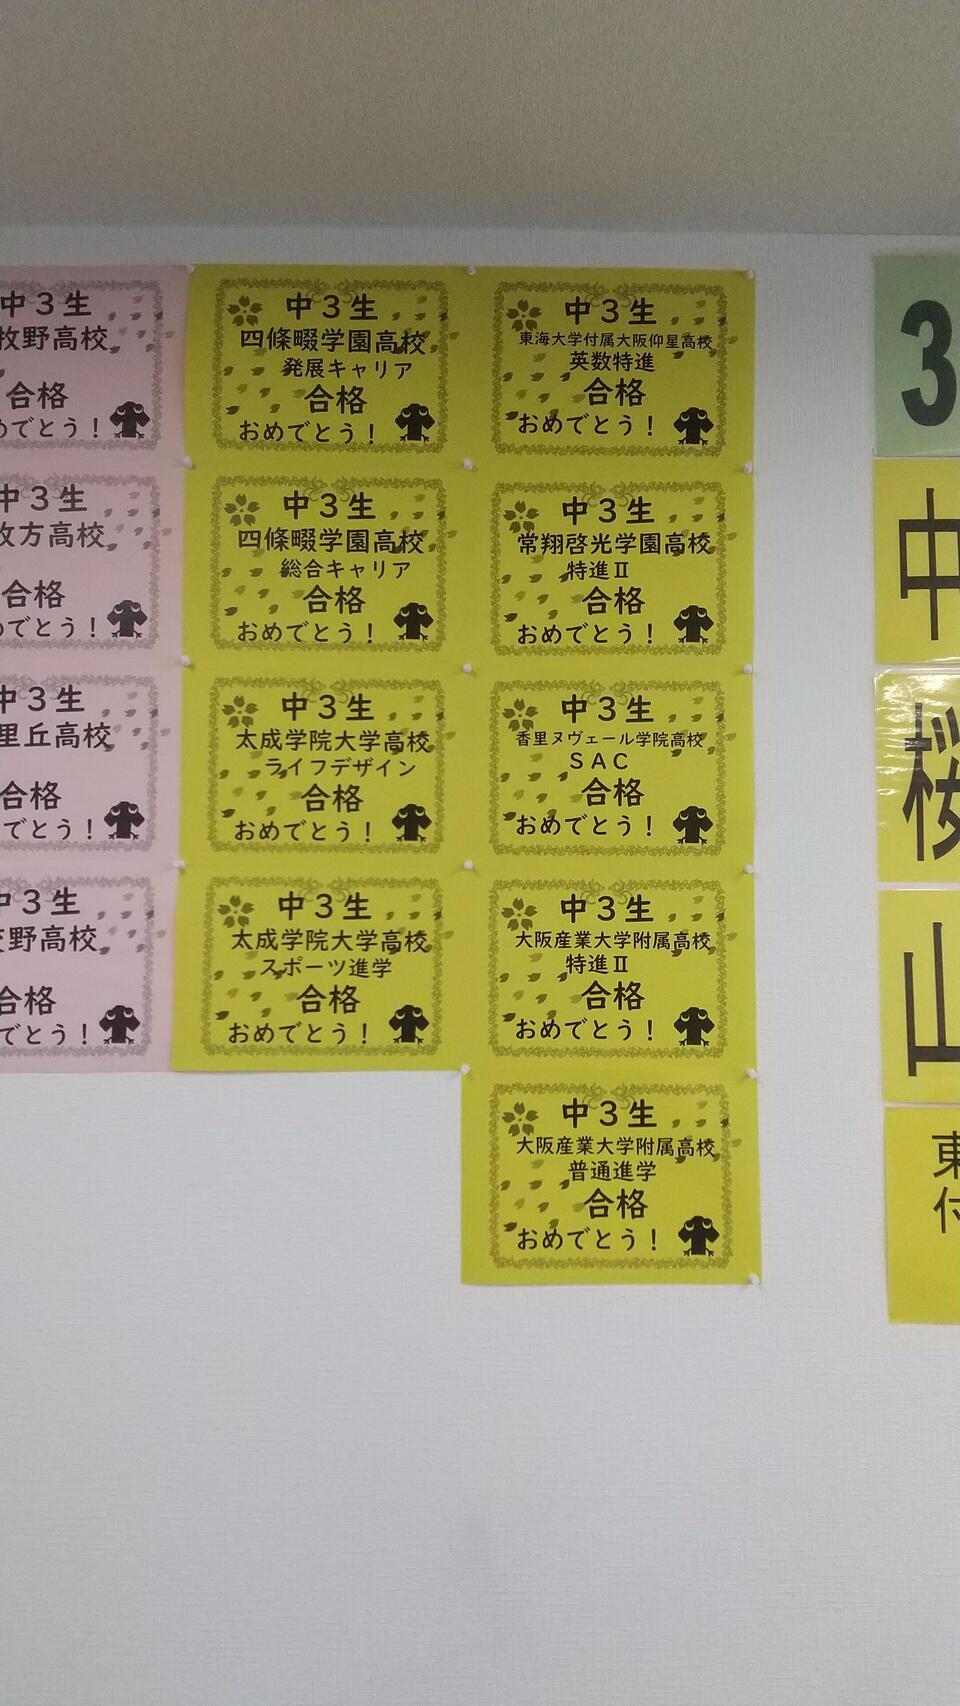 中３生
牧野高校
合格
めでとう！
中３生
枚方高校
合格
めでとう！
中３生
里丘高校
合格
でとう！
中３生
野高校
合格
でとう！
中３生
四條畷学園高校
発展キャリア
合格
おめでとう！
中３生
四條畷学園高校
総合キャリア
合格
おめでとう！
中３生
太成学院大学高校
ライフデザイン
合格
おめでとう！
中３生
太成学院大学高校
スポーツ進学
合格
おめでとう！
中３生
東海大学付属大阪仰星高校
英数特進
合格
おめでとう！
中３生
常翔啓光学園高校
特進Ⅱ
合格
おめでとう！
中３生
香里ヌヴェール学院高校
ＳＡＣ
合格
おめでとう！
中３生
大阪産業大学附属高校
特進Ⅱ
合格
おめでとう！
中３生
大阪産業大学附属高校
普通進学
合格
おめでとう！
3
中
桜
山
東
付